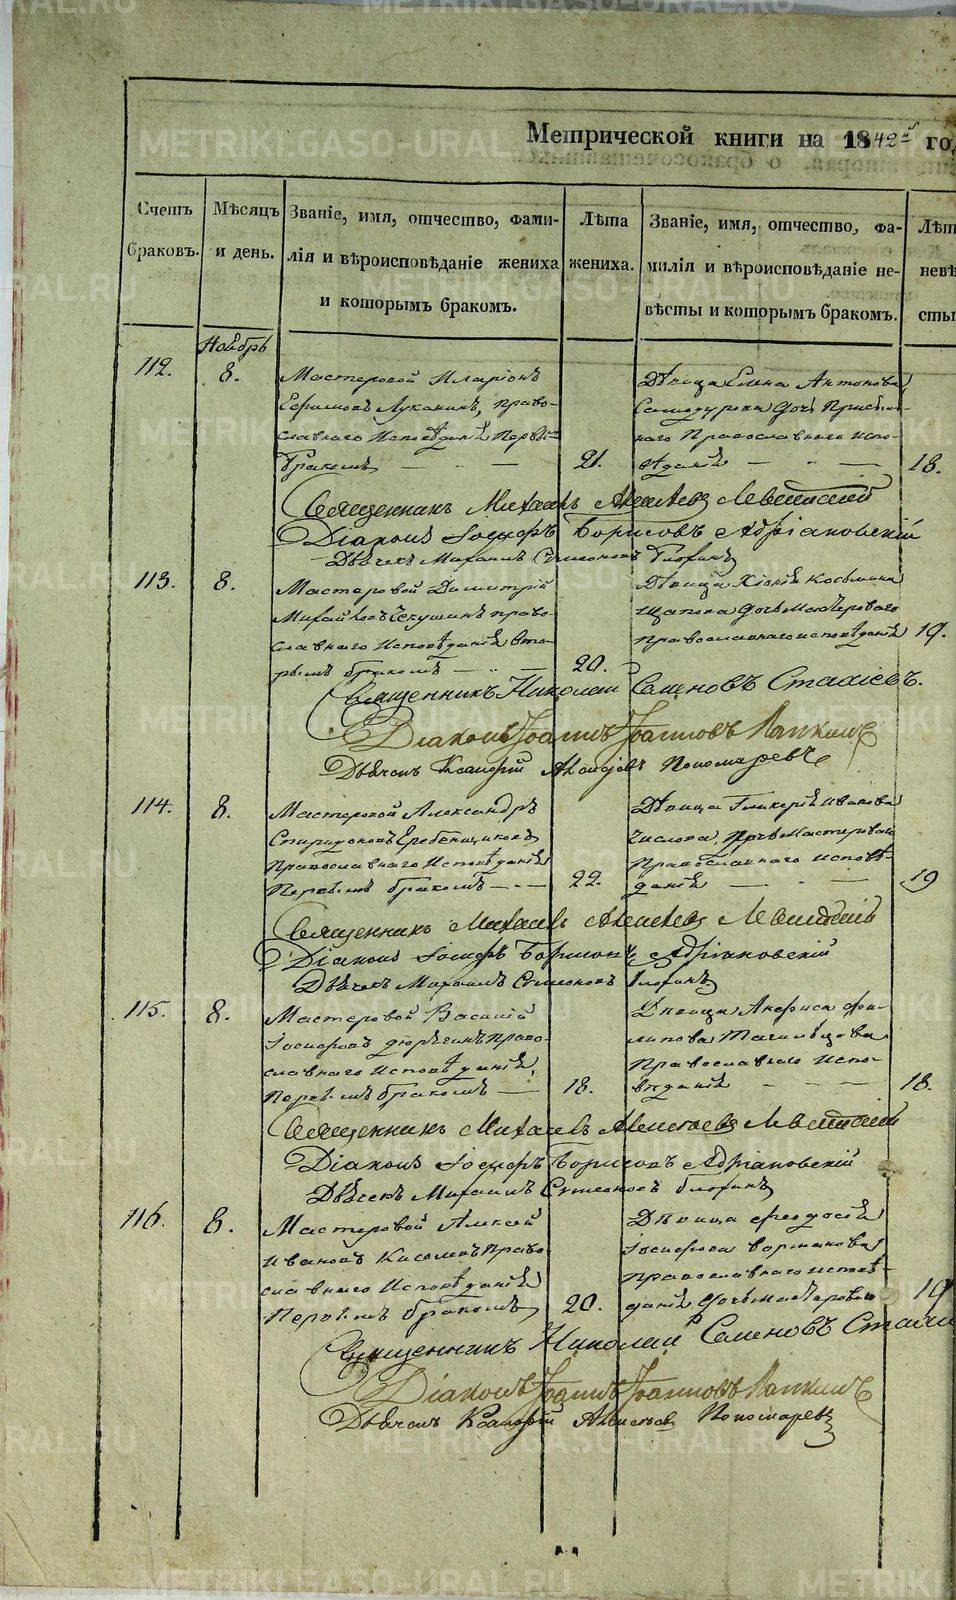 METRIKI.GASO-URAL.RU
Метрической книги на 1842й го
Счетъ браковъ.
Мѣсяцъ и день.
Званіе, имя, отчество, фами-
лія и вѣроисповѣданіе жениха
и которымъ бракомъ.
Лѣта жениха.
Званіе, имя, отчество, фа-
милія и вѣроисповѣданіе не-
вѣсты и которымъ бракомъ.
Лѣт
невѣ
сты
Ноябрь
112.
8.
Мастеровой Иларіонъ
Ефимовъ Луканинъ, право-
славнаго Исповѣданія Первымъ
бракомъ
21.
Дѣвица Елена Антонова
дочь
наго Православнаго испо-
вѣданія
18.
Священникъ Михаилъ Алексѣевъ Левитскій
Діаконъ Іосифъ Борисовъ Адріановскій
Дьячекъ Михаилъ Симеоновъ
113.
8.
Мастеровой Димитрій
Михайловъ Чекушинъ право-
славнаго Исповѣданія Вто-
рымъ бракомъ
20.
Дѣвица Хіонія Косьмина
Щапова дочь Мастероваго
православнаго исповѣданія
19.
Священникъ Николай Семеновъ Стахіевъ.
Діаконъ Іоаннъ Іоанновъ Лапкинъ
Дьячекъ Алексѣевъ Пономаревъ
114.
8.
Мастеровой Александръ
Спиридоновъ Гребенщиковъ
Православнаго Исповѣданія
Первымъ бракомъ
22.
Дѣвица Гликерія Иванова
дочь Мастероваго
Православнаго исповѣ-
данія
19
Священникъ Михаилъ Алексѣевъ Левитскій
Діаконъ Іосифъ Борисовъ Адріановскій
Дьячекъ Михаилъ Симеоновъ
115.
8.
Мастеровой Василій
Іосифовъ Дюрягинъ Право-
славнаго Исповѣданія,
Первымъ бракомъ
18.
Дѣвица Анфиса Фи-
липова Тагильцова
Православнаго Испо-
вѣданія
18.
Священникъ Михаилъ Алексѣевъ Левитскій
Діаконъ Іосифъ Борисовъ Адріановскій
Дьячекъ Михаилъ Симеоновъ
116.
8.
Мастеровой Алексѣй
Ивановъ Киселевъ Право-
славнаго Исповѣданія
Первымъ бракомъ
20.
Дѣвица Феодосія
Іосифова
Православнаго исповѣ-
данія дочь мастероваго
19
Священникъ Николай Семеновъ
Діаконъ Іоаннъ Іоанновъ Лапкинъ
Дьячекъ Алексѣевъ Пономаревъ